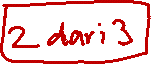 2 dari 3